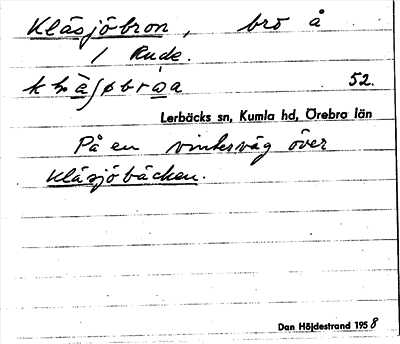 Kläsjöbron, bro å
1 Rude.
52.
Lerbäcks sn, Kumla hd, Örebro län
På en vinterväg över
Kläsjöbäcken.
Dan Höjdestrand 1958